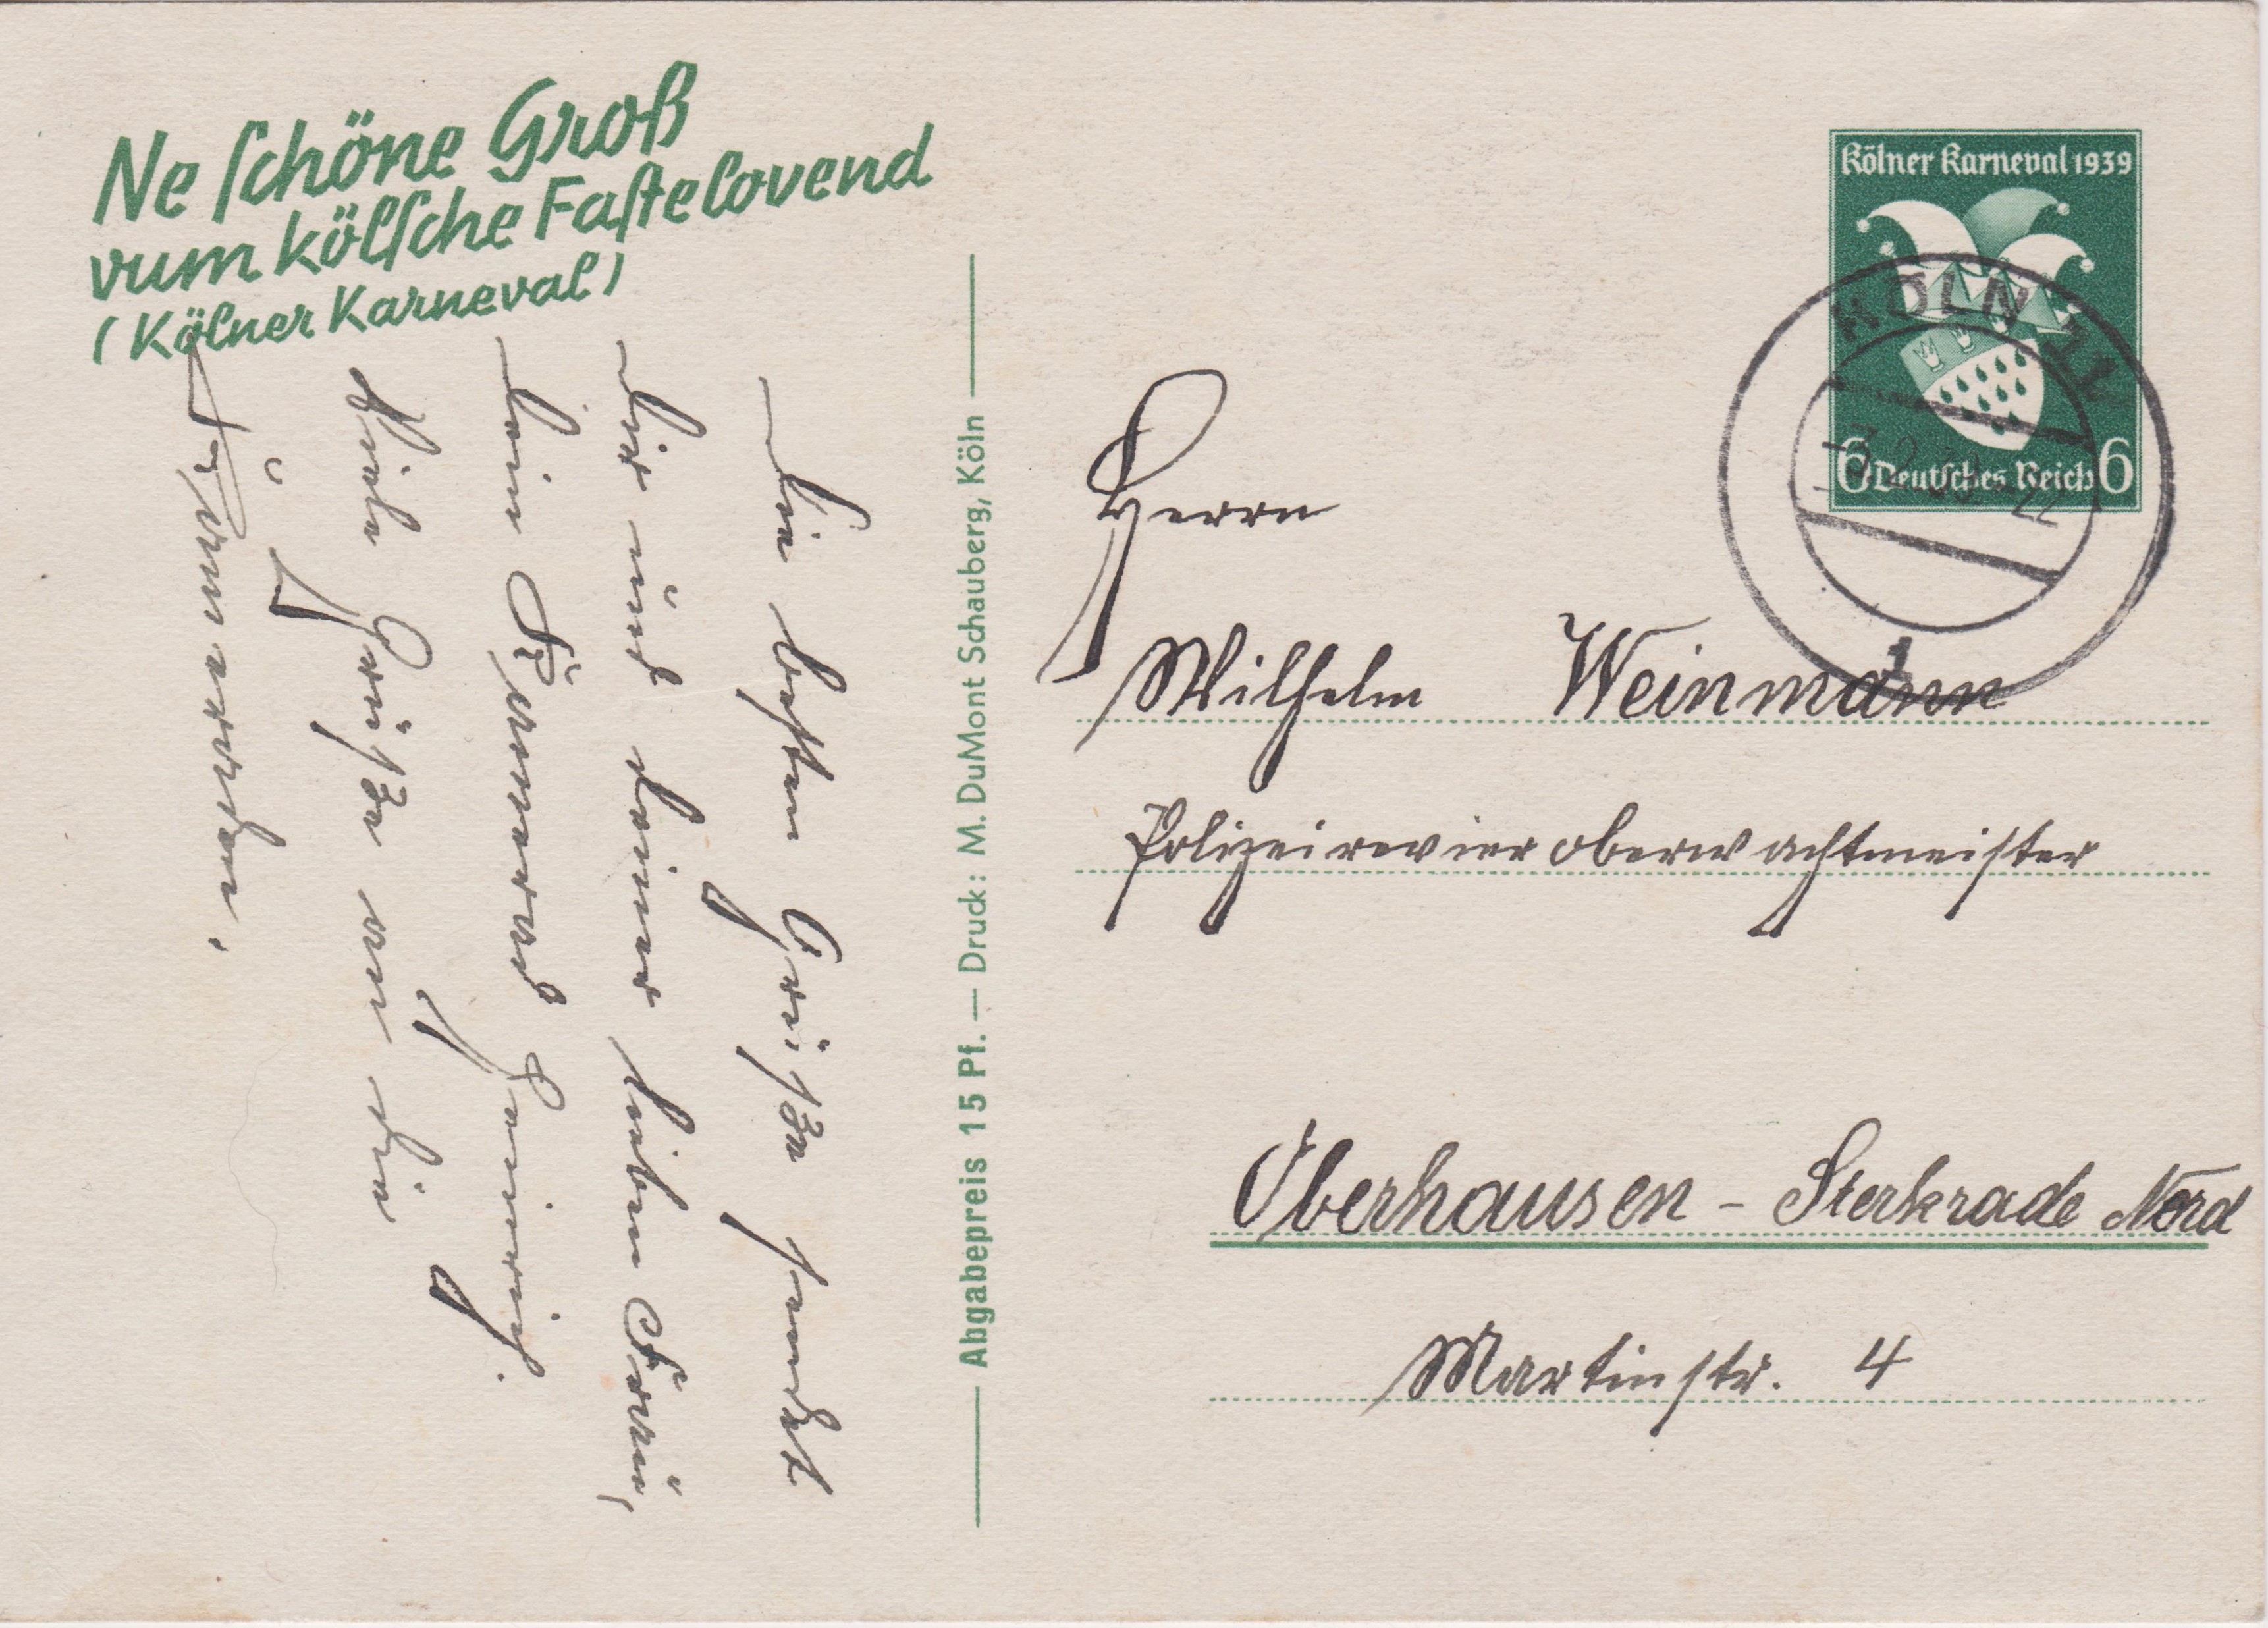 Ne schöne Groß
vum kölsche Fastelovend
(Kölner Karneval)
Die besten Grüße sendet
Dir und deiner lieben Frau,
dein Kamerad Heinrich.
Viele Grüße an die
Kameraden.
Abgabepreis 15 Pf. — Druck: M. DuMont Schauberg, Köln
Kölner Karneval 1939
6 Deutsches Reich 6
KÖLN 11
1
Herrn
Wilhelm Weinmann
Polizeirevieroberwachtmeister
Oberhausen - Sterkrade Nord
Martinstr. 4